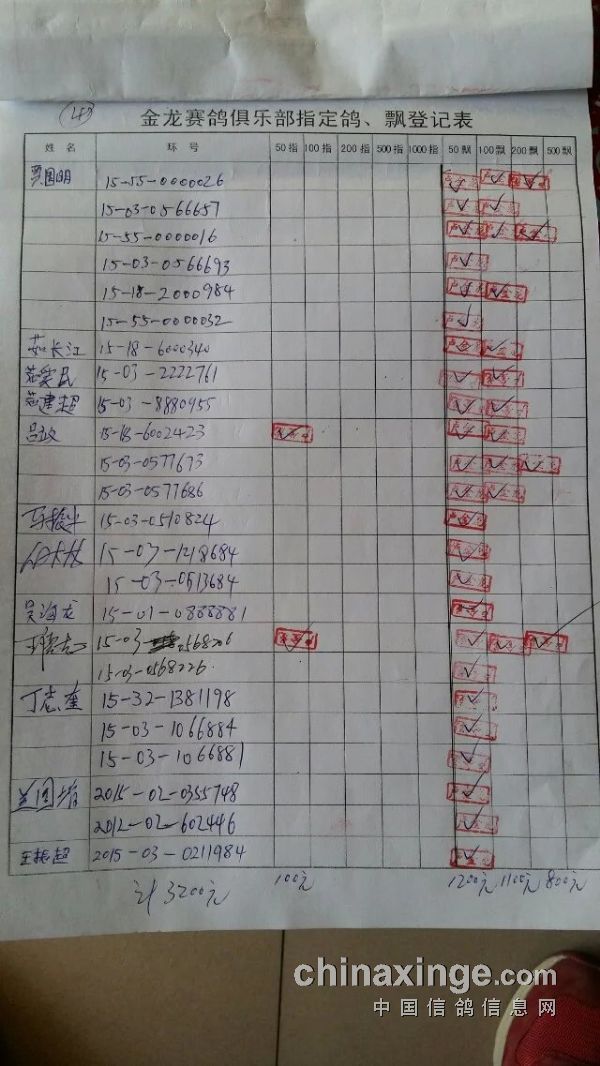 金龙赛鸽俱乐部指定鸽、飘登记表
姓 名 环 号 50指 100指 200指 500指 1000指 50飘 100飘 200飘 500飘
贾国明 15-55-0000026
15-03-0566657
15-55-0000016
15-03-0566693
15-18-2000984
15-55-0000032
茹长江 15-18-6000340
15-03-2222761
15-03-8880955
15-18-6002423
15-03-0577673
15-03-0577686
15-03-0510824
15-03-1218684
15-03-0513684
吴海龙 15-01-0888881
15-03 0568206
15-03-0568226
丁志奎 15-32-1381198
15-03-1066884
15-03-1066881
2015-02-0355748
2012-02-602446
王振超 2015-03-0211984
计3200元 100元 1200元 1100元 800元
chinaxinge.com
中国信鸽信息网